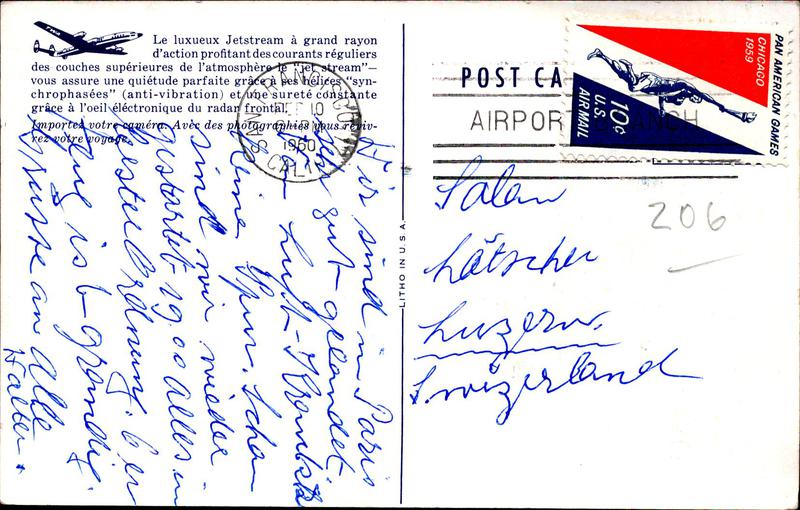 Le luxueux Jetstream à grand rayon
d'action profitant des courants réguliers
des couches supérieures de l'atmosphère le "jet stream"—
vous assure une quiétude parfaite grâce à ses hélices "syn-
chrophasées" (anti-vibration) et une sureté constante
grâce à l'oeil électronique du radar frontal.
Importez votre caméra. Avec des photographies vous reviv-
rez votre voyage.
POST CA
AIRPORT BRANCH
SAN FRANCISCO
10
1960
CALIF.
PAN AMERICAN GAMES
CHICAGO
1959
10¢
U.S.
AIR MAIL
LITHO IN U.S.A.
206
Salon
Lötscher
Luzern.
Swizerland
Wir sind in Paris
sehr gut gelandet
Luft-
keine Spur. Schon
sind wir wieder
gestartet 19.00 Alles in
bester Ordnung. Der
Flug ist grandig.
Grüsse an Alle
Walter.